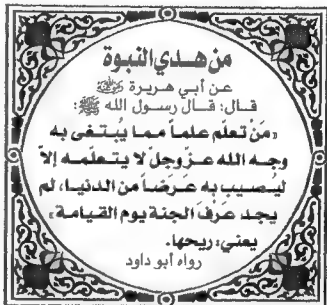 من هدي النبوة
عن أبي هريرة رضي الله عنه
قال: قال رسول الله ﷺ:
«مَنْ تعلّم علماً مما يُبتغى به
وجه الله عزّ وجلّ لا يتعلّمه إلاّ
ليُصيب به عَرَضاً من الدنيا، لم
يجد عَرْفَ الجنة يوم القيامة»
يعني: ريحها.
رواه أبو داود